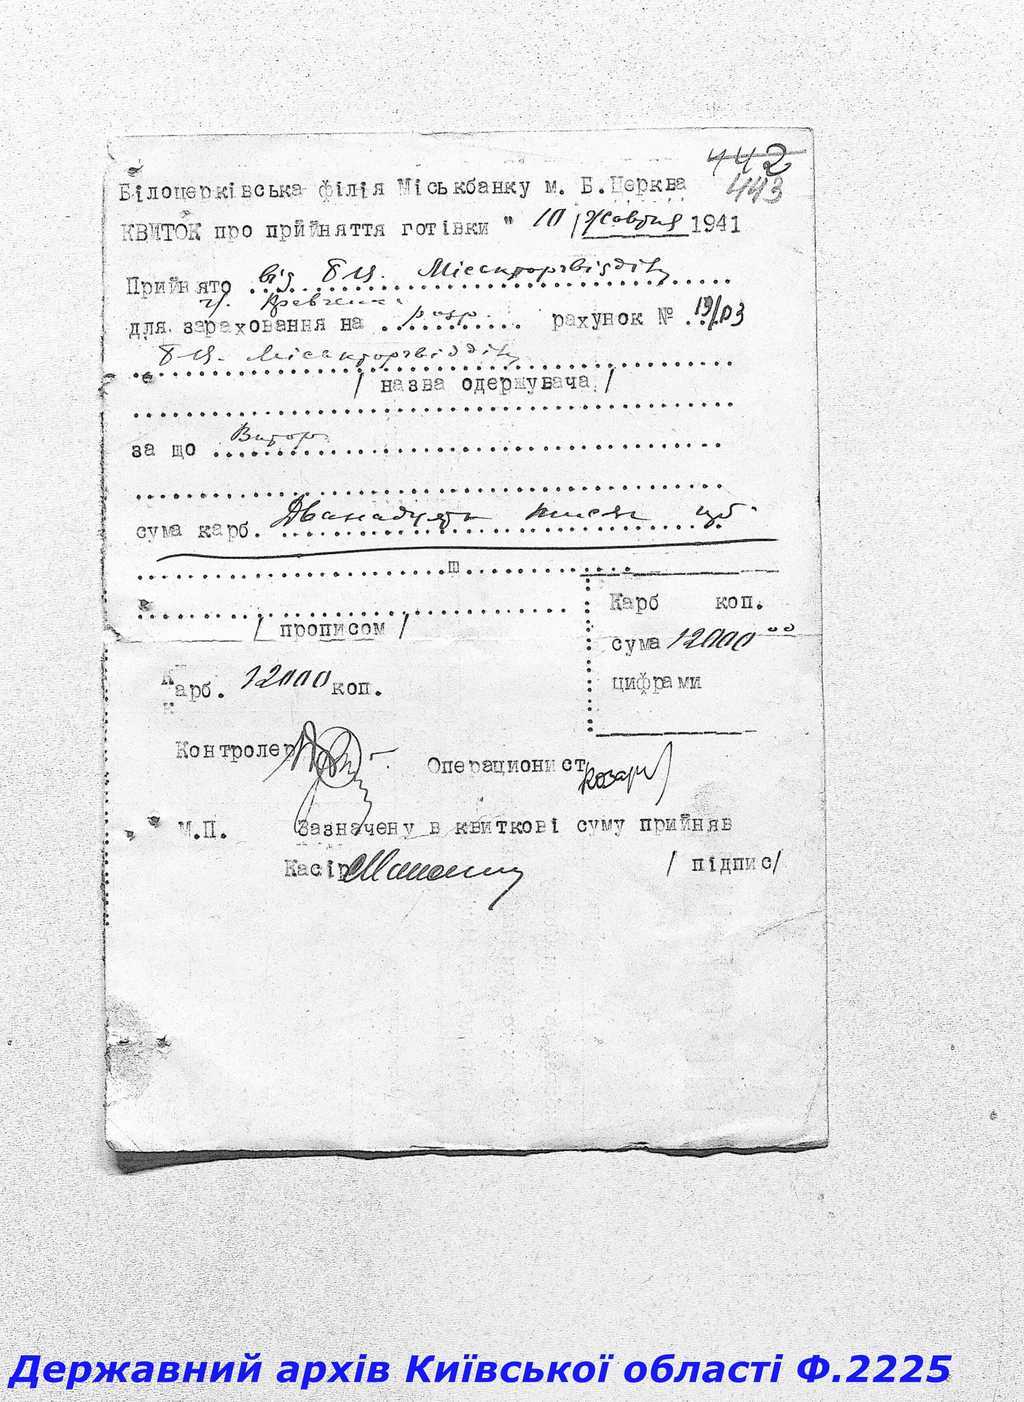 442
443
Білоцерківська філія Міськбанку м. Б.Церква
КВИТОК про прийняття готівки " 10 / жовтня 1941
Прийнято від БЦ. Міськторгвідділ
гр.
для зарахування на розр. рахунок № 19/03
БЦ. Міськторгвідділ
/ назва одержувача /
за що Виторг
сума карб. Дванадцять тисяч
ш
/ прописом /
Карб коп.
сума 12000 00
цифрами
Карб. 12000 коп.
Контролер
Операционист
М.П. Зазначену в квиткові суму прийняв
Касір / підпис/
Державний архів Київської області Ф.2225